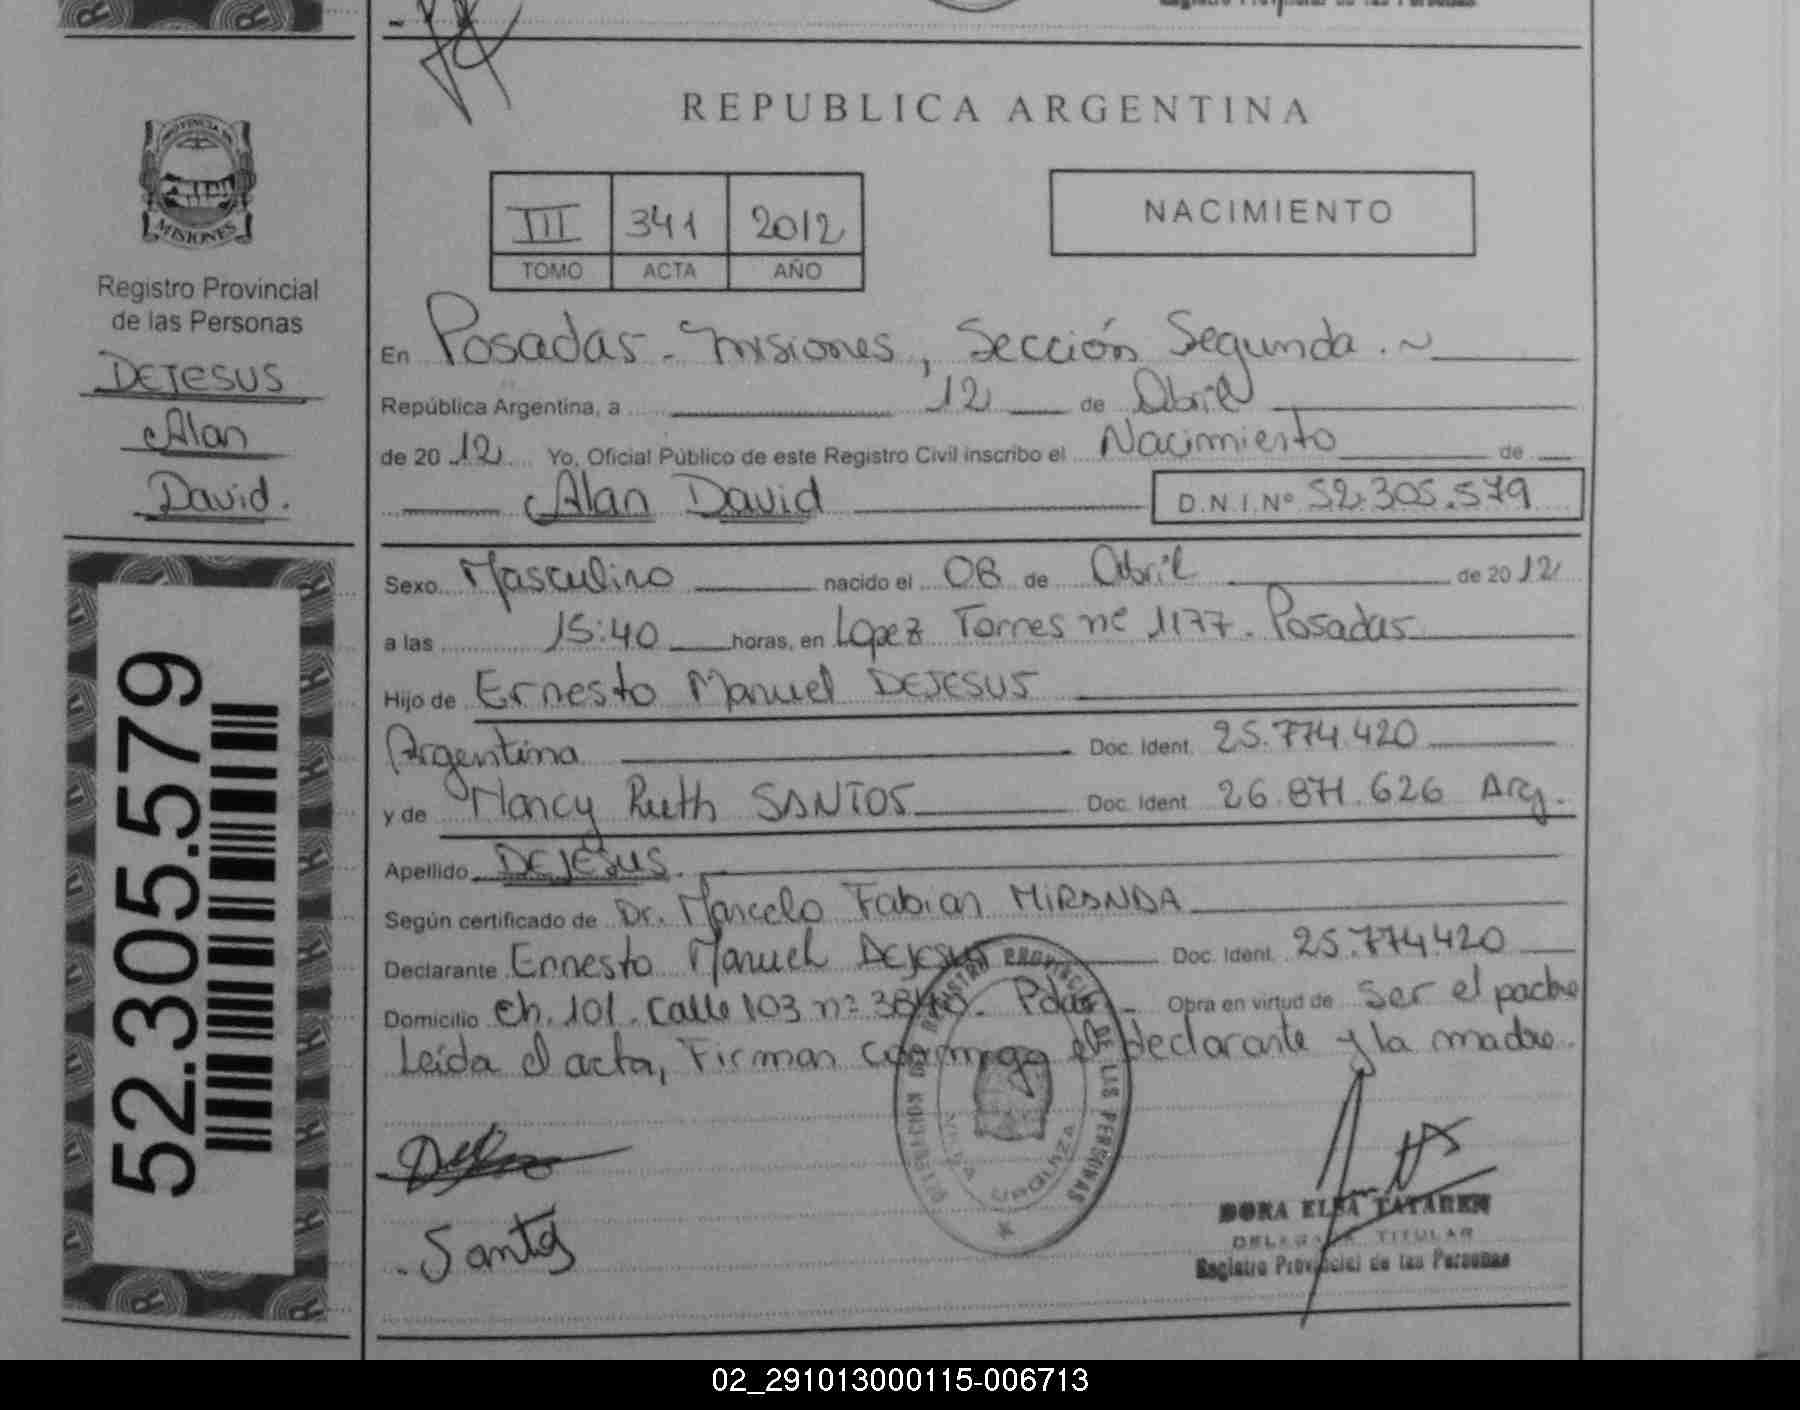 REPUBLICA ARGENTINA
PROVINCIA DE
MISIONES
Registro Provincial
de las Personas
DEJESUS
Alan
David.
52.305.579
III 341 2012
TOMO ACTA AÑO
NACIMIENTO
En Posadas - Misiones, Sección Segunda. ~
República Argentina, a 12 de Abril
de 2012 Yo, Oficial Público de este Registro Civil inscribo el Nacimiento de
Alan David D.N.I.Nº 52.305.579
Sexo Masculino nacido el 08 de Abril de 2012
a las 15:40 horas, en Lopez Torres nº 1177. Posadas
Hijo de Ernesto Manuel DEJESUS
Argentina Doc. Ident. 25.774.420
y de Nancy Ruth SANTOS Doc. Ident 26.871.626 Arg.
Apellido DEJESUS.
Según certificado de Dr. Marcelo Fabian MIRANDA
Declarante Ernesto Manuel DEJESUS Doc. Ident. 25.774.420
Domicilio Ch. 101. Calle 103 nº 3840. Pdas. Obra en virtud de ser el padre
Leida el acta, Firman conmigo el declarante y la madre.
DIRECCION DEL REGISTRO PROVINCIAL DE LAS PERSONAS
URQUIZA
Santos
DORA ELSA TATAREN
DELEGADA TITULAR
Registro Provincial de las Personas
02_291013000115-006713